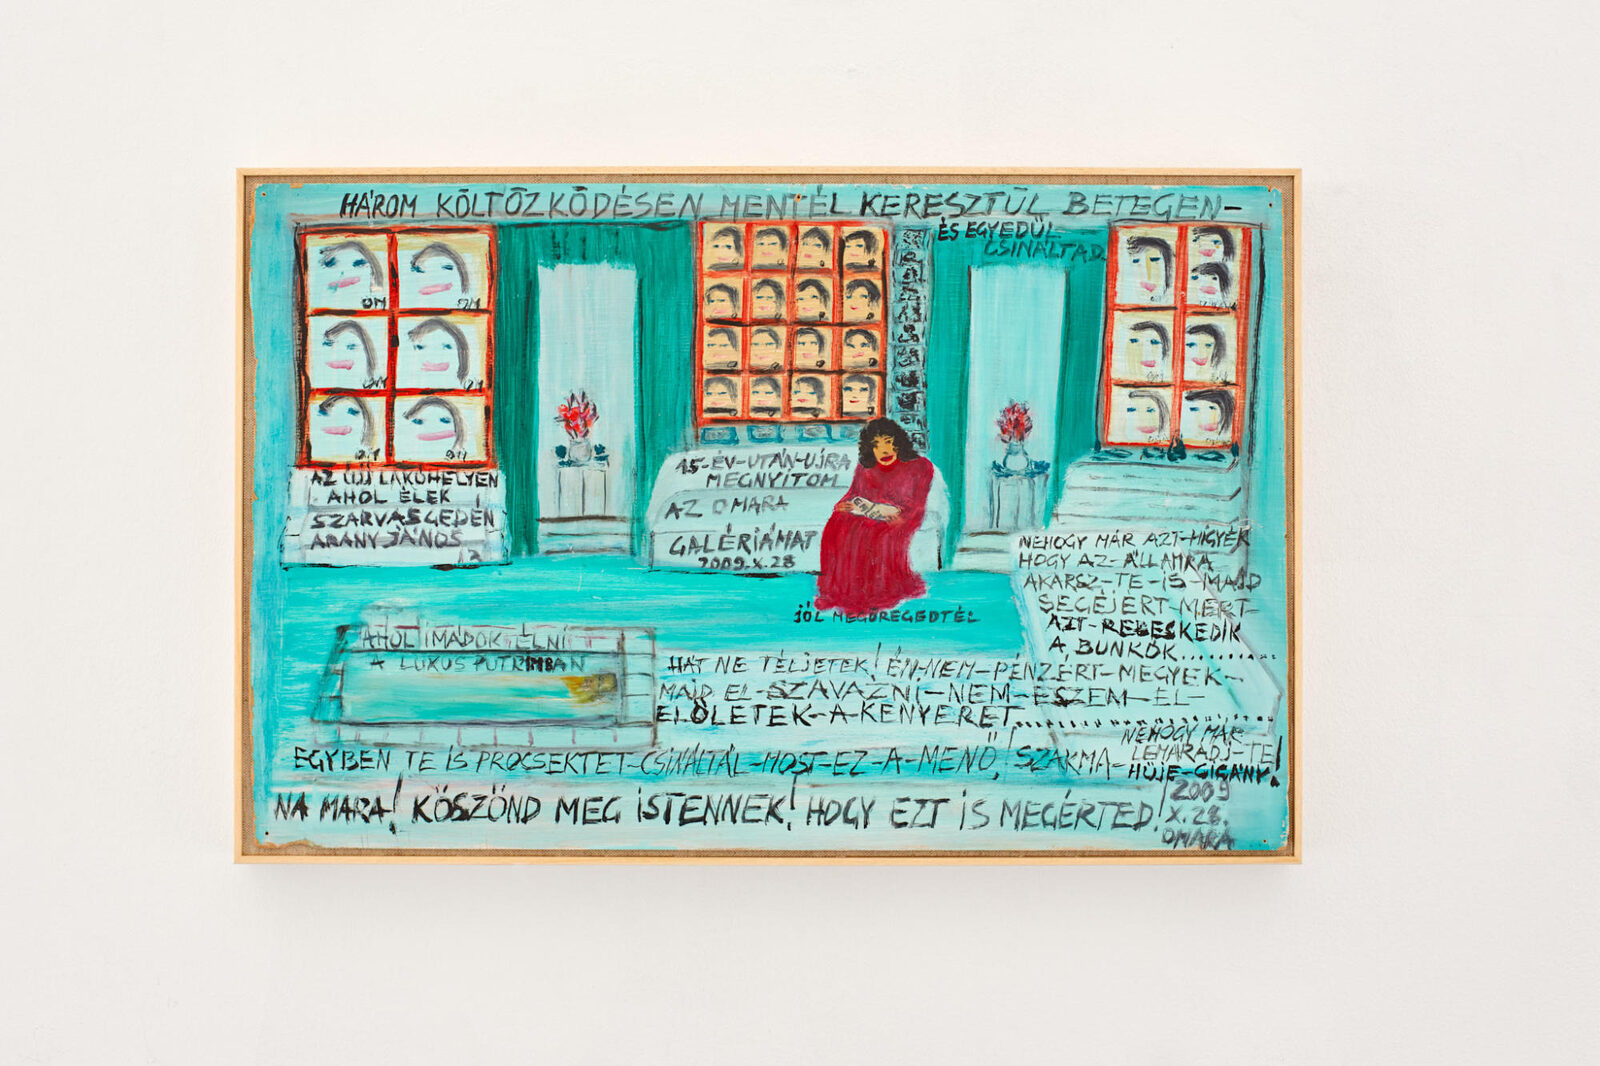 HÁROM KÖLTÖZKÖDÉSEN MENTÉL KERESZTÜL BETEGEN-
ÉS EGYEDÜL
CSINÁLTAD
OM
OM
OM
OM
OM
OM
AZ ÚJ LAKÓHELYEN
AHOL ÉLEK
SZARVASGEDÉN
ARANY JÁNOS
12
15-ÉV-UTÁN-ÚJRA
MEGNYITOM
AZ OMARA
GALÉRIÁMAT
2009.X.28
JÓL MEGÖREGEDTÉL
NEHOGY MÁR AZT-HIGYÉK
HOGY AZ-ÁLLAMRA
AKARSZ-TE-IS-MAJD
SEGÉJÉRT-MERT-
AZT-REBESKEDIK
A, BUNKÓK..............
AHOL IMÁDOK ÉLNI
A LUXUS PUTRIMBAN
HÁT NE FÉLJETEK! ÉN-NEM-PÉNZÉRT-MEGYEK-
MAJD EL-SZAVAZNI-NEM-ESZEM-EL-
ELŐLETEK-A-KENYERET......................
EGYBEN TE IS PROCSEKTET-CSINÁLTÁL-MOST-EZ-A-MENŐ! SZAKMA-
NEHOGY MÁR
LEMARADJ-TE!
HÜJE-CIGÁNY!
NA MARA! KÖSZÖND MEG ISTENNEK! HOGY EZT IS MEGÉRTED!
2009
X.28.
OMARA